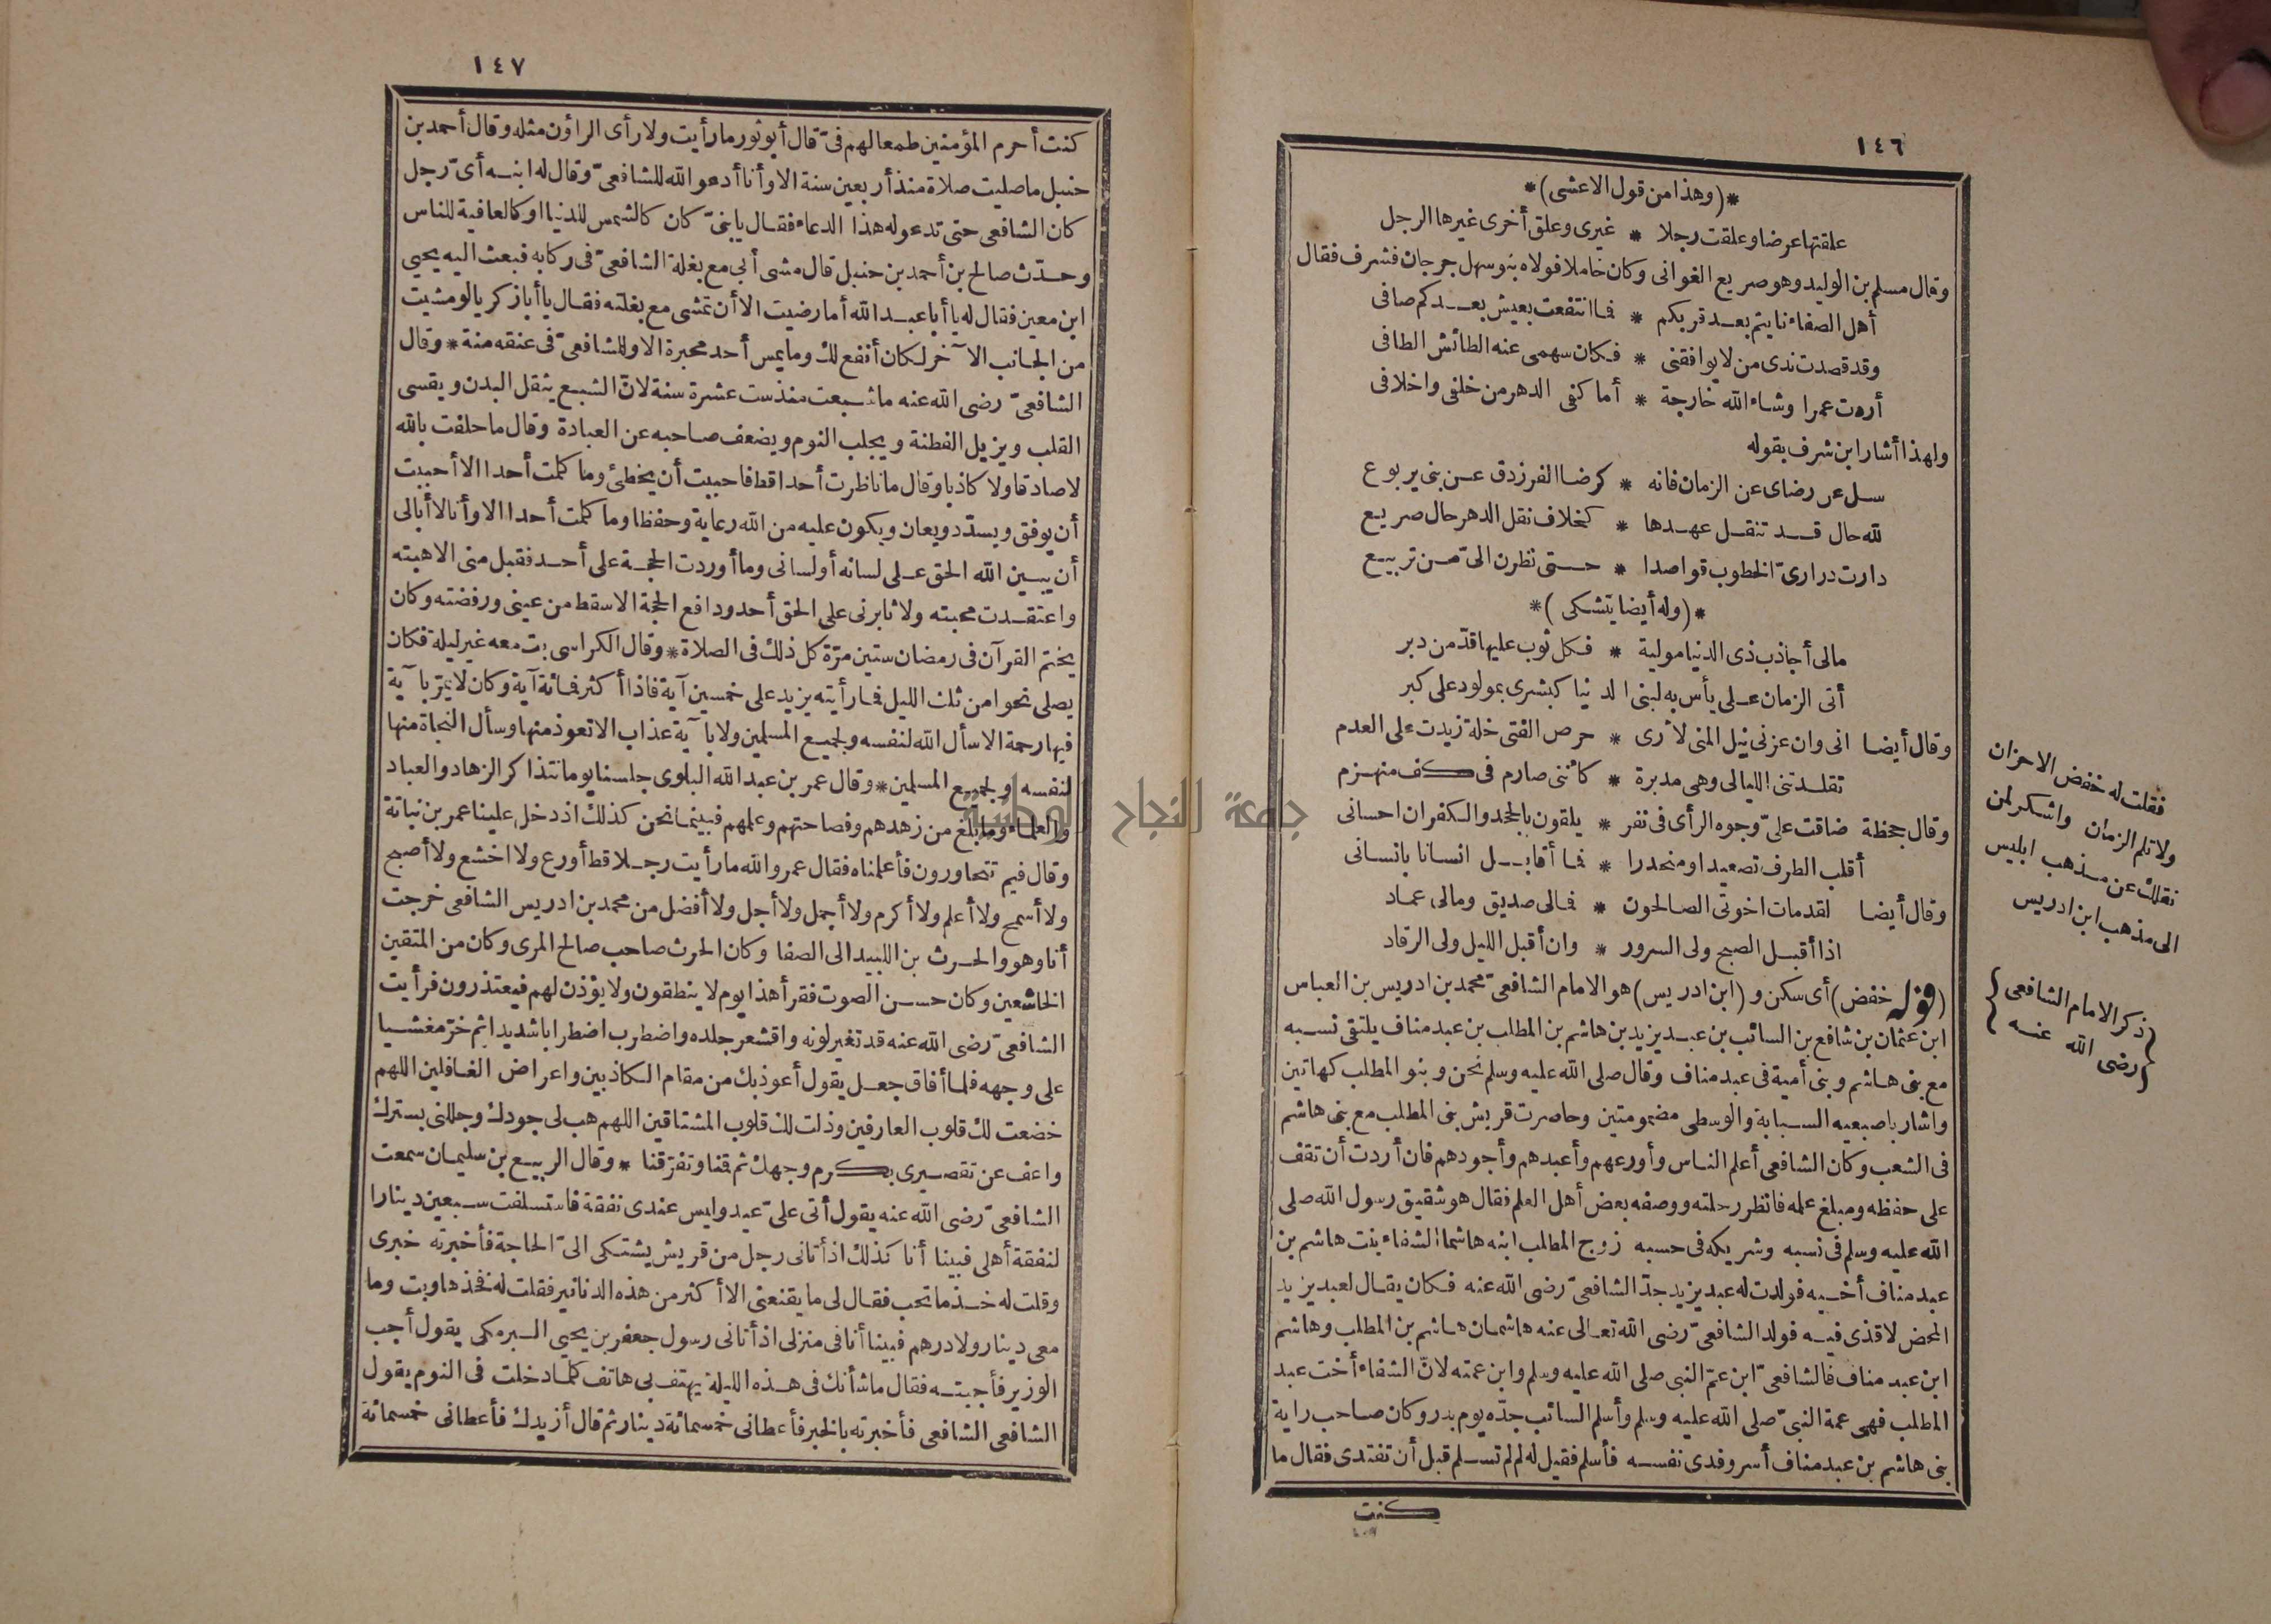 ١٤٦
*(وهذا من قول الاعشى)*
علقتها عرضا وعلقت رجلا * غيرى وعلق أخرى غيرها الرجل
وقال مسلم بن الوليد وهو صريع الغوانى وكان خاملا فولاه بنو سهل جرجان فشرف فقال
أهل الصفاء نايتم بعد قربكم * فما انتفعت بعيش بعدكم صافى
وقد قصدت ندى من لا يوافقنى * فكان سهمى عنه الطائش الطافى
أردت عمرا وشاء الله خارجة * أما كفى الدهر من خلفى واخلافى
ولهذا أشار ابن شرف بقوله
سل عن رضاى عن الزمان فانه * كرضا الفرزدق عن بنى يربوع
لله حال قد تنقل عهدها * كخلاف نقل الدهر حال صريع
دارت درارىّ الخطوب قواصدا * حتى نظرن الىّ من تربيع
*(وله أيضا يتشكى)*
مالى أجاذب ذى الدنيا مولية * فكل ثوب عليها قدّ من دبر
أتى الزمان على يأس به لبنى الدنيا كبشرى بمولود على كبر
وقال أيضا انى وان عزنى نيل المنى لأرى * حرص الفتى خلة زيدت على العدم
تقلدتنى الليالى وهى مدبرة * كأننى صارم فى كف منهزم
وقال جحظة ضاقت علىّ وجوه الرأى فى نفر * يلقون بالجحد والكفران احسانى
أقلب الطرف تصعيدا ومنحدرا * فما أقابل انسانا بانسانى
وقال أيضا لقد مات اخوتى الصالحون * فمالى صديق ومالى عماد
اذا أقبل الصبح ولى السرور * وان أقبل الليل ولى الرقاد
(قوله خفض) أى سكن و (ابن ادريس) هو الامام الشافعىّ محمد بن ادريس بن العباس
ابن عثمان بن شافع بن السائب بن عبد يزيد بن هاشم بن المطلب بن عبد مناف يلتقى نسبه
مع بنى هاشم وبنى أمية فى عبد مناف وقال صلى الله عليه وسلم نحن وبنو المطلب كهاتين
واشار باصبعيه السبابة والوسطى مضمومتين وحاصرت قريش بنى المطلب مع بنى هاشم
فى الشعب وكان الشافعى أعلم الناس وأورعهم وأعبدهم وأجودهم فان أردت أن تقف
على حفظه ومبلغ علمه فانظر رحلته ووصفه بعض أهل العلم فقال هو شقيق رسول الله صلى
الله عليه وسلم فى نسبه وشريكه فى حسبه زوج المطلب ابنه هاشما الشفاء بنت هاشم بن
عبد مناف أخيه فولدت له عبد يزيد جدّ الشافعىّ رضى الله عنه فكان يقال لعبد يزيد
المحض لا قذى فيه فولد الشافعىّ رضى الله تعالى عنه هاشمان هاشم بن المطلب وهاشم
ابن عبد مناف فالشافعىّ ابن عمّ النبى صلى الله عليه وسلم وابن عمته لانّ الشفاء أخت عبد
المطلب فهى عمة النبىّ صلى الله عليه وسلم وأسلم السائب جدّه يوم بدر وكان صاحب راية
بنى هاشم بن عبد مناف أسر وفدى نفسه فأسلم فقيل له لم لم تسلم قبل أن تفتدى فقال ما
كنت
فقلت له خفض الاحزان
ولا تلم الزمان واشكر لمن
نقلك عن مذهب ابليس
الى مذهب ابن ادريس
{ذكر الامام الشافعى}
{رضى الله عنه}
١٤٧
كنت أحرم المؤمنين طمعا لهم فىّ قال أبو ثور ما رأيت ولا رأى الراؤن مثله وقال أحمد بن
حنبل ما صليت صلاة منذ أربعين سنة الا وأنا أدعو الله للشافعىّ وقال له ابنه أىّ رجل
كان الشافعى حتى تدعو له هذا الدعاء فقال يا بنىّ كان كالشمس للدنيا وكالعافية للناس
وحدّث صالح بن أحمد بن حنبل قال مشى أبى مع بغلة الشافعىّ فى ركابه فبعث اليه يحيى
ابن معين فقال له يا أبا عبد الله أما رضيت الا أن تمشى مع بغلته فقال يا أبا زكريا لو مشيت
من الجانب الآخر لكان أنفع لك وما يمس أحد محبرة الا وللشافعىّ فى عنقه منة * وقال
الشافعىّ رضى الله عنه ما شبعت منذ ست عشرة سنة لانّ الشبع يثقل البدن ويقسى
القلب ويزيل الفطنة ويجلب النوم ويضعف صاحبه عن العبادة وقال ما حلفت بالله
لا صادقا ولا كاذبا وقال ما ناظرت أحدا قط فاحببت أن يخطئ وما كلمت أحدا الا أحببت
أن يوفق ويسدّد ويعان ويكون عليه من الله رعاية وحفظ وما كلمت أحدا الا وأنا لا أبالى
أن يبين الله الحق على لسانه أو لسانى وما أوردت الحجة على أحد فقبل منى الا هبته
واعتقدت محبته ولا ثابرنى على الحق أحد ودافع الحجة الا سقط من عينى ورفضته وكان
يختم القرآن فى رمضان ستين مرّة كل ذلك فى الصلاة * وقال الكراسى بت معه غير ليلة فكان
يصلى نحوا من ثلث الليل فما رأيته يزيد على خمسين آية فاذا أكثر فمائة آية وكان لا يمرّ بآية
فيها رحمة الا سأل الله لنفسه ولجميع المسلمين ولا بآية عذاب الا تعوذ منها وسأل النجاة منها
لنفسه ولجميع المسلمين * وقال عمر بن عبد الله البلوى جلسنا يوما نتذاكر الزهاد والعباد
والعلماء وما بلغ من زهدهم وفصاحتهم وعلمهم فبينما نحن كذلك اذ دخل علينا عمر بن نباتة
وقال فيم تتحاورون فأعلمناه فقال عمر والله ما رأيت رجلا قط أورع ولا اخشع ولا أصبح
ولا أسمح ولا أعلم ولا أكرم ولا أجمل ولا أجل ولا أفضل من محمد بن ادريس الشافعى خرجت
أنا وهو والحرث بن اللبيد الى الصفا وكان الحرث صاحب صالح المرى وكان من المتقين
الخاشعين وكان حسن الصوت فقرأ هذا يوم لا ينطقون ولا يؤذن لهم فيعتذرون فرأيت
الشافعىّ رضى الله عنه قد تغير لونه واقشعر جلده واضطرب اضطرابا شديدا ثم خرّ مغشيا
على وجهه فلما أفاق جعل يقول أعوذ بك من مقام الكاذبين واعراض الغافلين اللهم
خضعت لك قلوب العارفين وذلت لك قلوب المشتاقين اللهم هب لى جودك وجللنى بسترك
واعف عن تقصيرى بكرم وجهك ثم قنا وتفرّقنا * وقال الربيع بن سليمان سمعت
الشافعىّ رضى الله عنه يقول أتى علىّ عيد وليس عندى نفقة فاستسلفت سبعين دينارا
لنفقة أهلى فبينا أنا كذلك اذ أتانى رجل من قريش يشتكى الىّ الحاجة فأخبرته خبرى
وقلت له خذ ما تحب فقال لى ما يقنعنى الا أكثر من هذه الدنانير فقلت له فخذها وبت وما
معى دينار ولا درهم فبينا أنا فى منزلى اذ أتانى رسول جعفر بن يحيى البرمكى يقول أجب
الوزير فأجبته فقال ما شأنك فى هذه الليلة يهتف بى هاتف كلما دخلت فى النوم يقول
الشافعى الشافعى فأخبرته بالخبر فأعطانى خمسمائة دينار ثم قال أزيدك فأعطانى خمسمائة
جامعة النجاح الوطنية